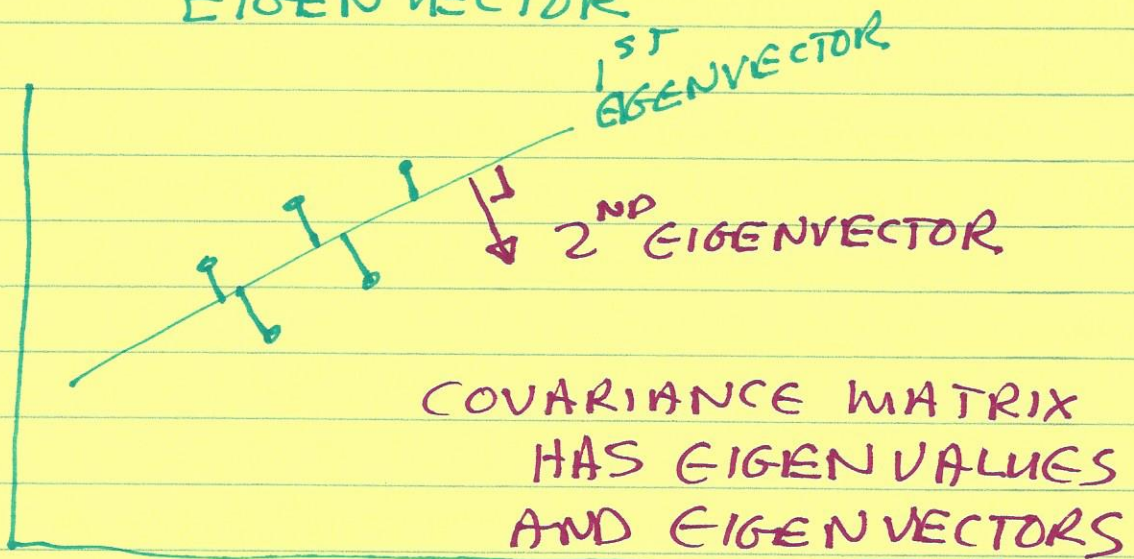 EIGENVECTOR
1ST
EGENVECTOR
2ND EIGENVECTOR
COVARIANCE MATRIX
HAS EIGENVALUES
AND EIGENVECTORS